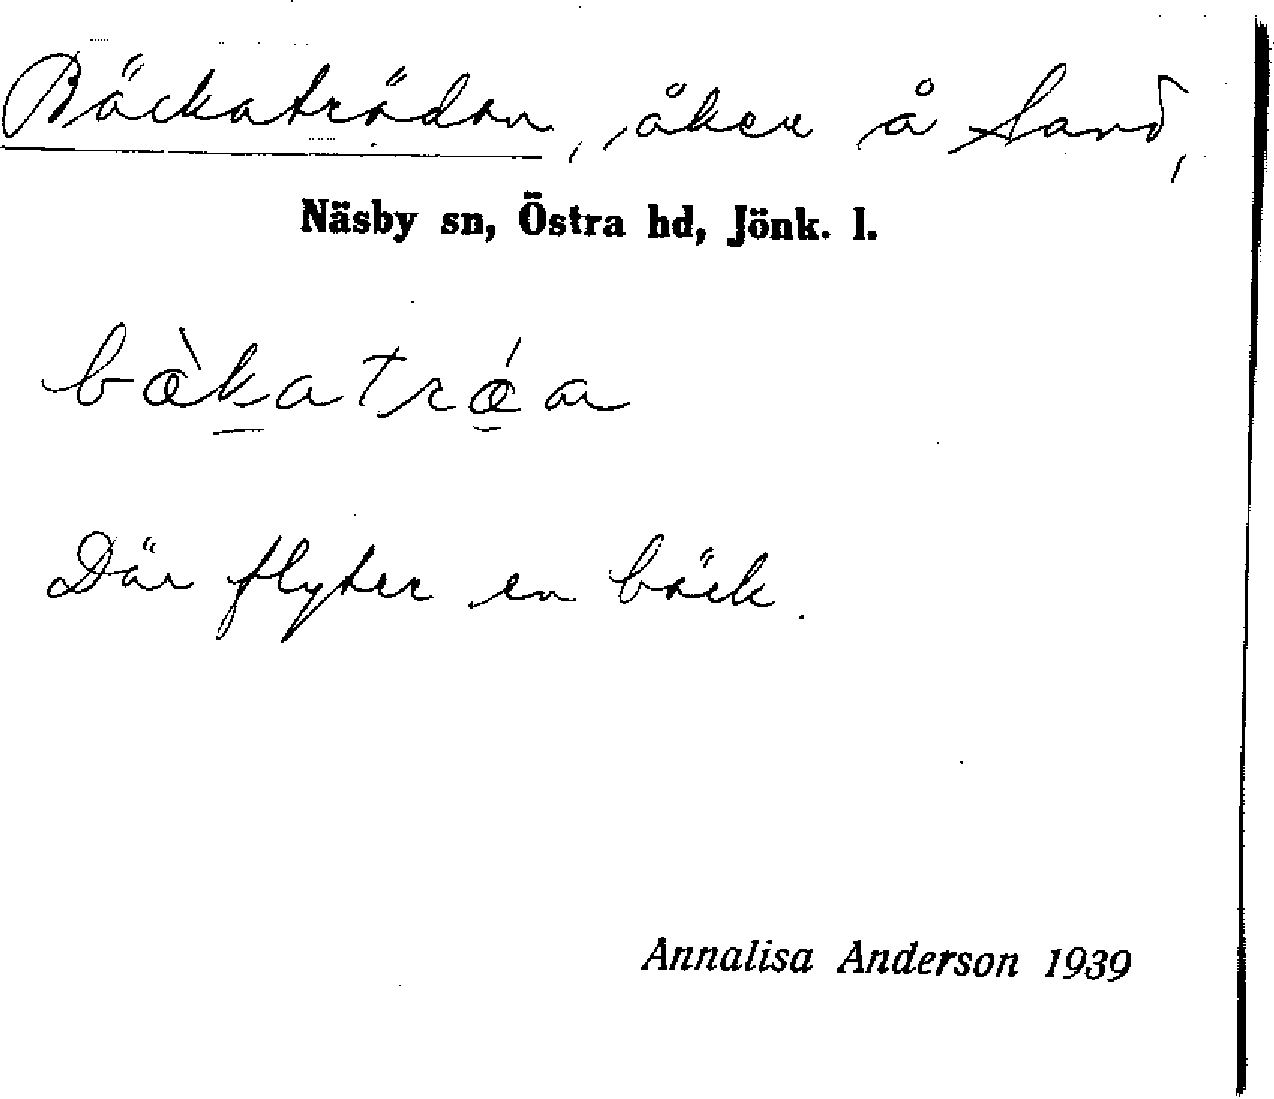 Bäckaträdan, åker å Sand,
Näsby sn, Östra hd, Jönk. l.
bæ̀katrǽa
Där flyter en bäck.
Annalisa Anderson 1939